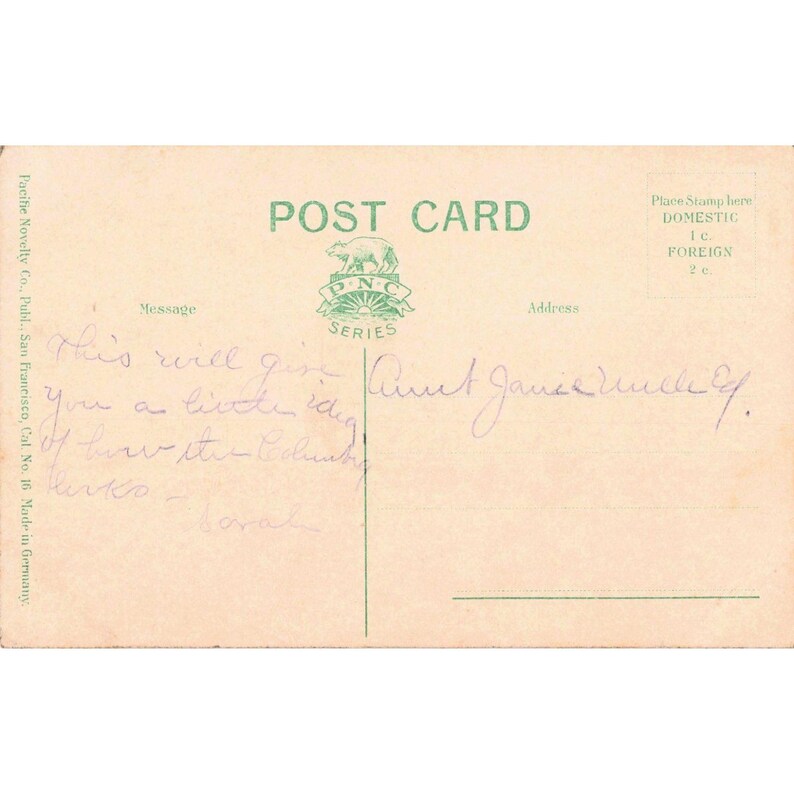 POST CARD
Place Stamp here
DOMESTIC
1 c.
FOREIGN
2 c.
P·N·C
SERIES
Message
Address
This will give
you a little idea
of how the Columbia
looks –
Sarah
Aunt Janie Uncle Ed.
Pacific Novelty Co., Publ., San Francisco, Cal. No. 16 Made in Germany.